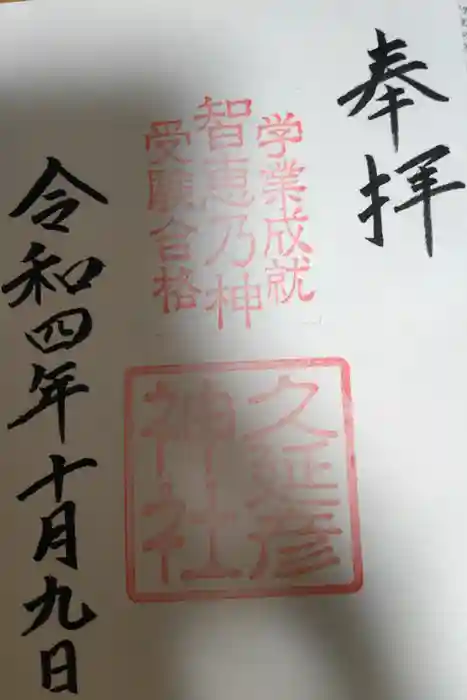 奉拝
学業成就
智恵乃神
受験合格
久延彦
神社
令和四年十月九日